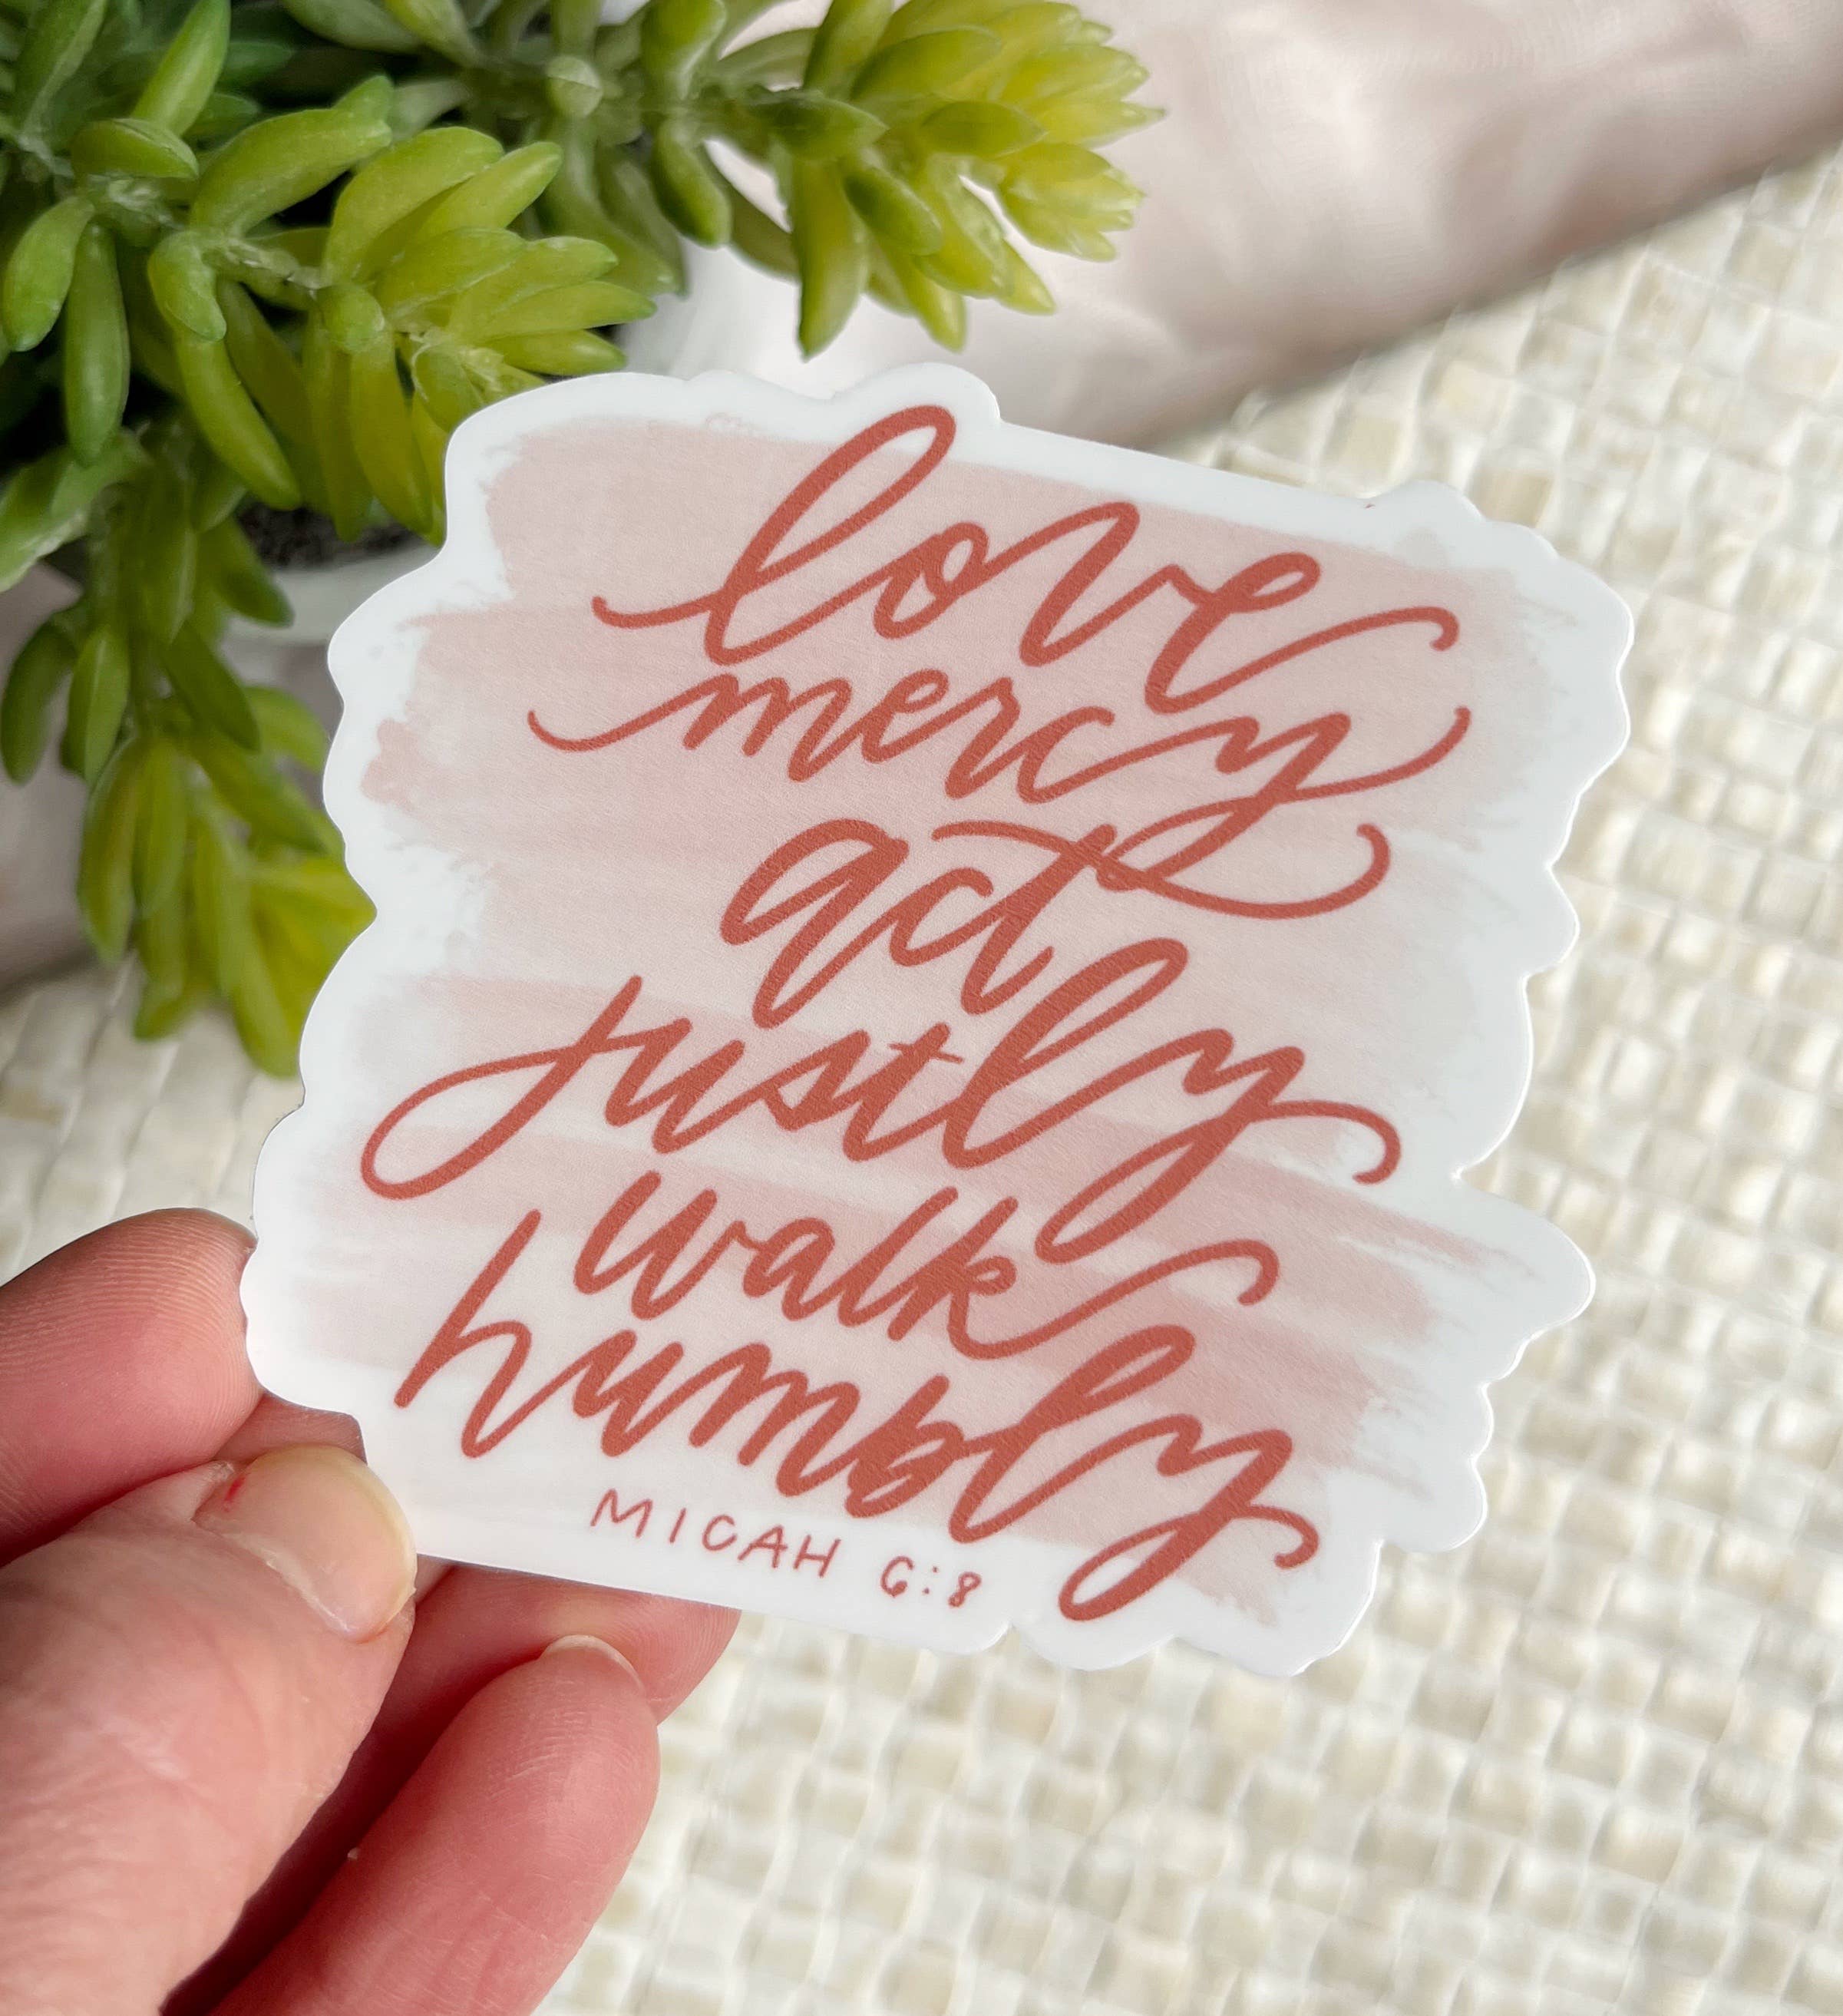 love
mercy
act
justly
walk
humbly
MICAH 6:8